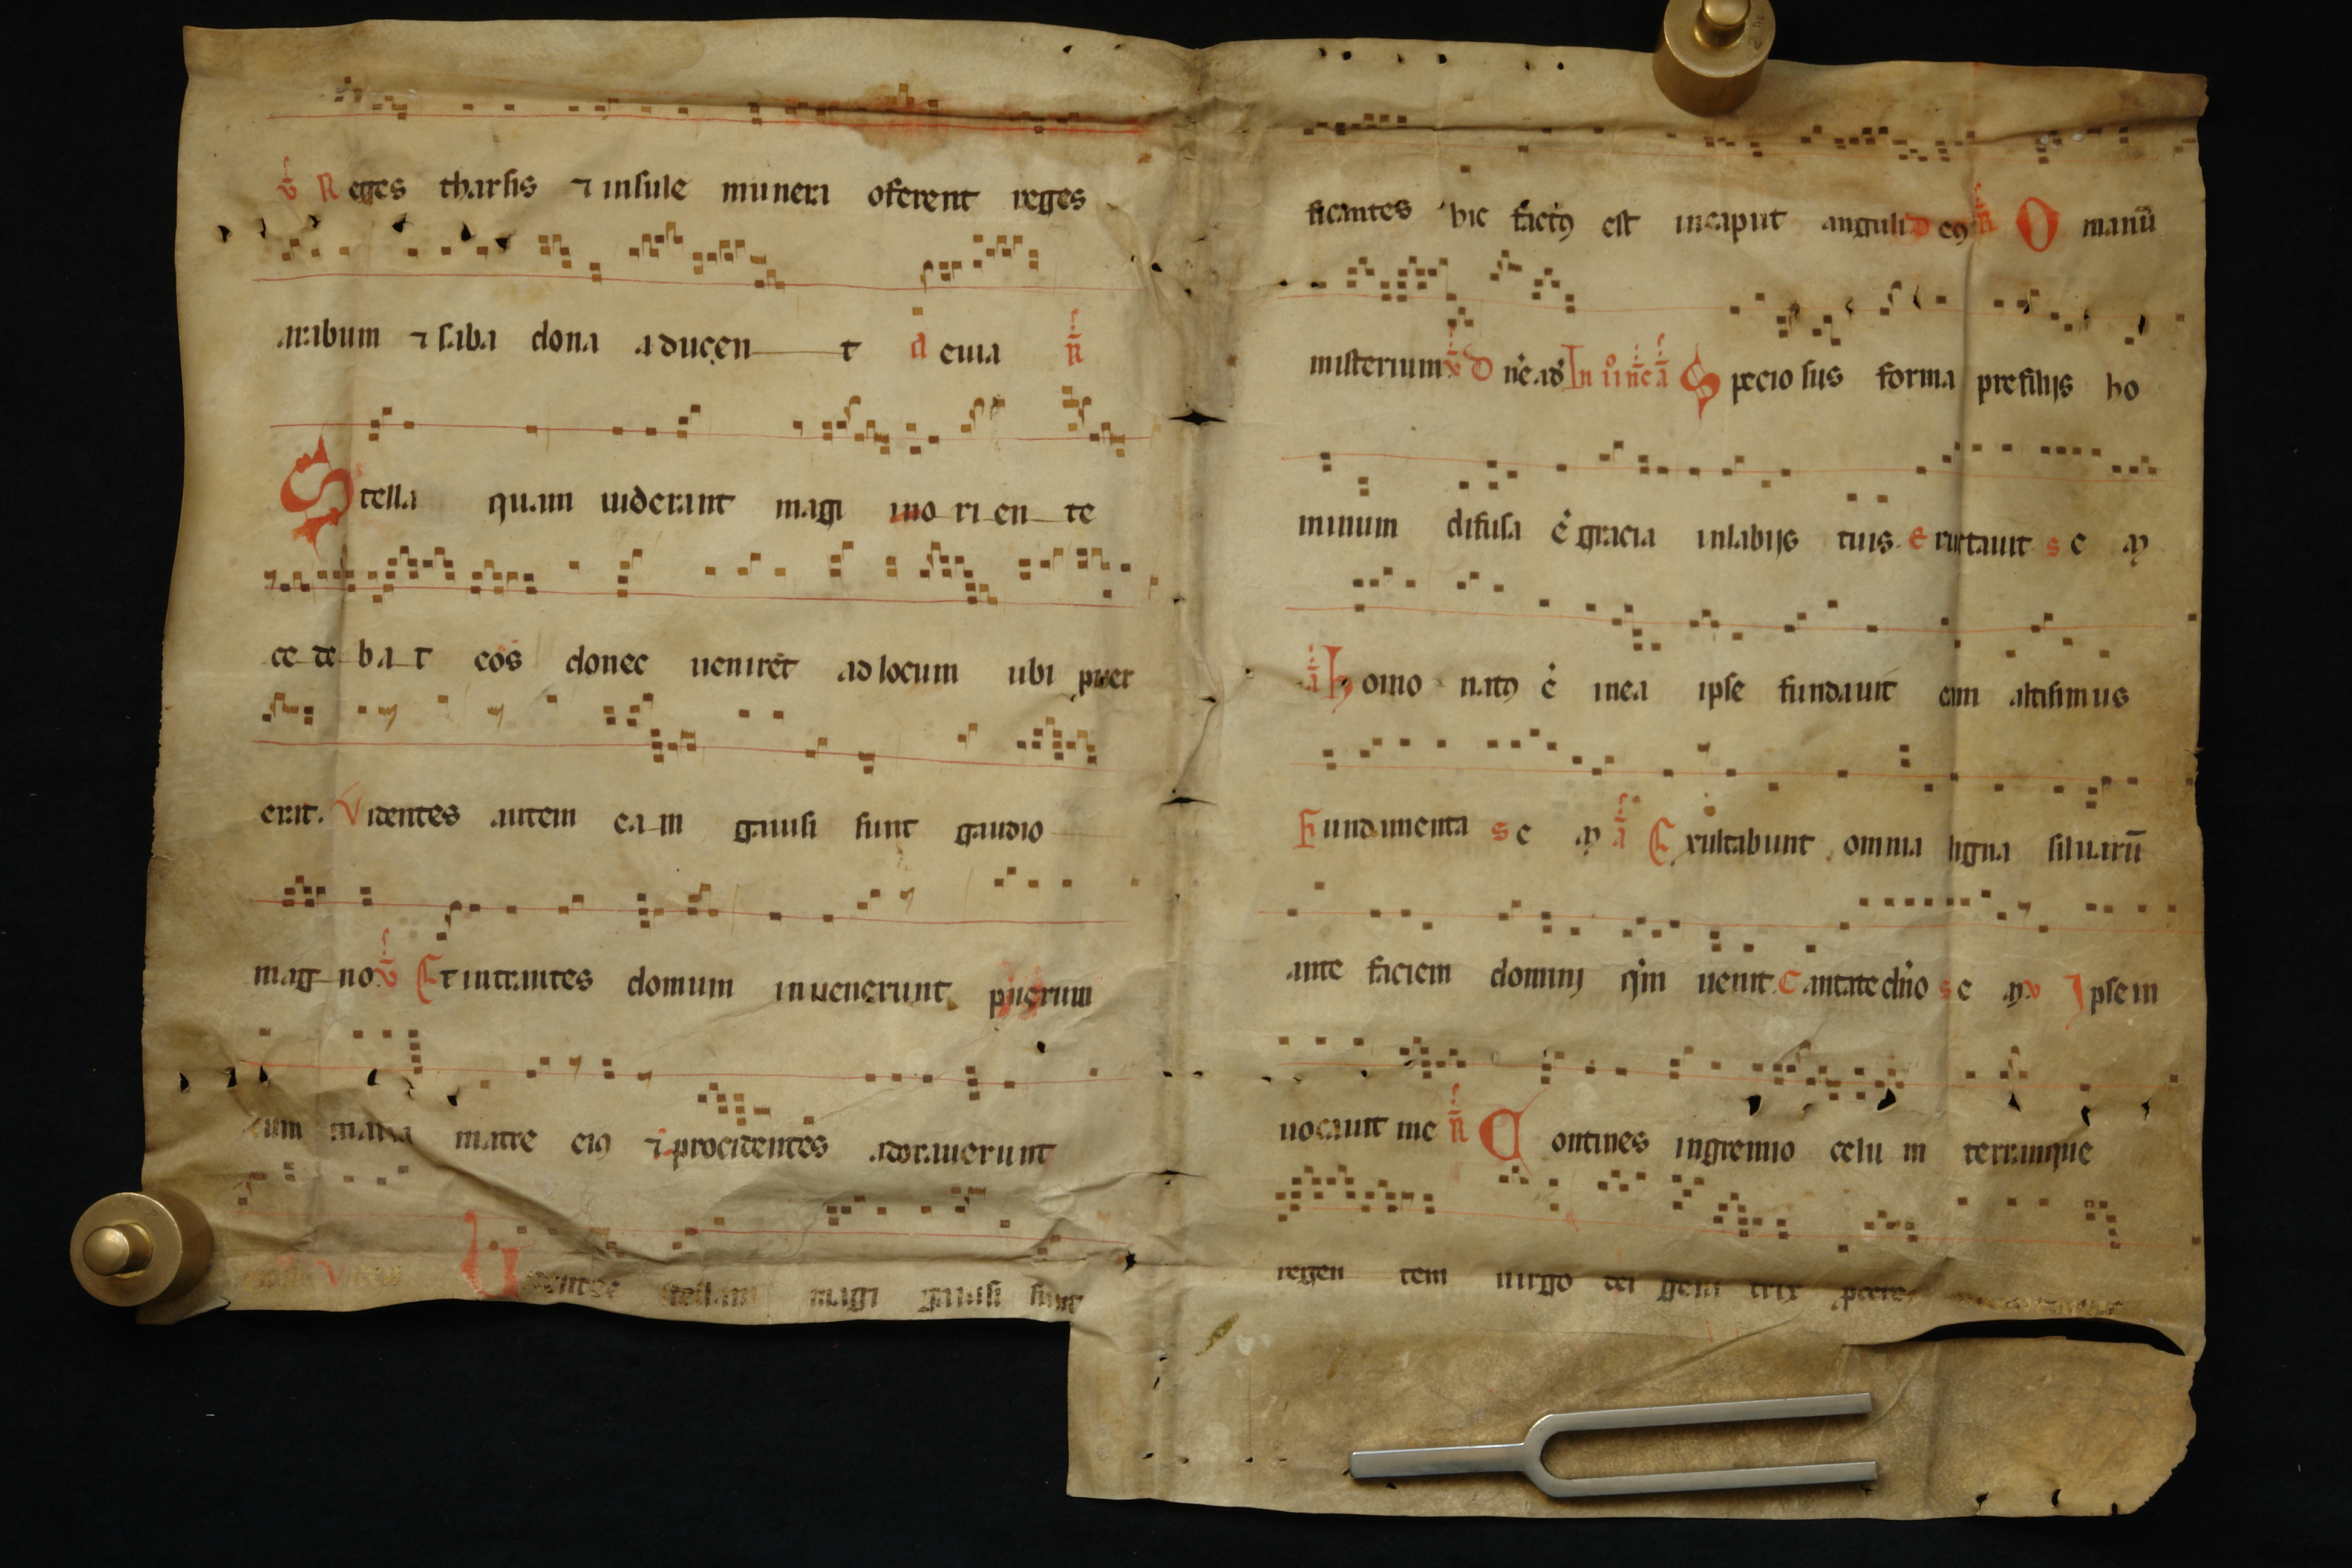 v̄ Reges tharsis ⁊ insule munera oferent reges
arabum ⁊ saba dona aducen t aeuia R̄
Stella quam uiderant magi in o ri en te
ce de ba t eos donec ueniret ad locum ubi puer
erat. Videntes autem ea m gauisi sunt gaudio
mag no v̄ Et intrantes domum inuenerunt puerum
cum maria matre eiꝯ ⁊ procidentes adorauerunt
Uidentes stellam magi gauisi sunt
ficantes hic factꝯ est incaput anguli Deꝯ R̄ O manū
misterium v̄ D ne ad Speciosus forma prefilijs ho
minum difusa ē gracia inlabijs tuis. Eructauit se
ā homo natꝯ ē inea ipse fundauit eam altisimus
Fundamenta se ā Exultabunt omnia ligna siluarū
ante faciem dominj qm̄ uenit Cantate dn̄o se v Ipse in
uocauit me R̄ Contines ingremio celu m terramque
regen tem uirgo dei geni trix